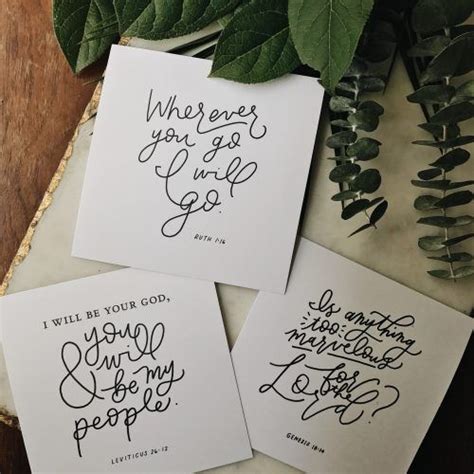 Wherever
you go
I will
go.
RUTH 1:16
I WILL BE YOUR GOD,
you
& will
be my
people.
LEVITICUS 26:12
Is anything
too
marvelous
for
the
Lord?
GENESIS 18:14